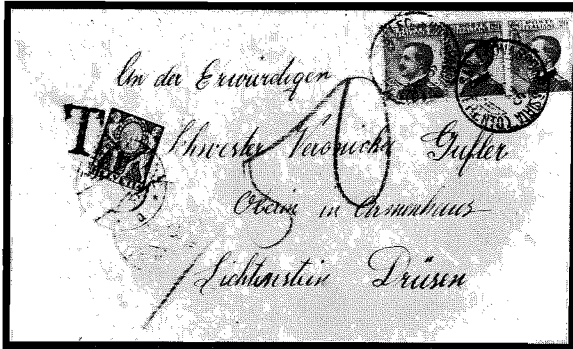 An der Erwürdigen
Schwester Veronicka Gufler
Oberin in Armenhaus
Lichtenstein Drüsen
T
50